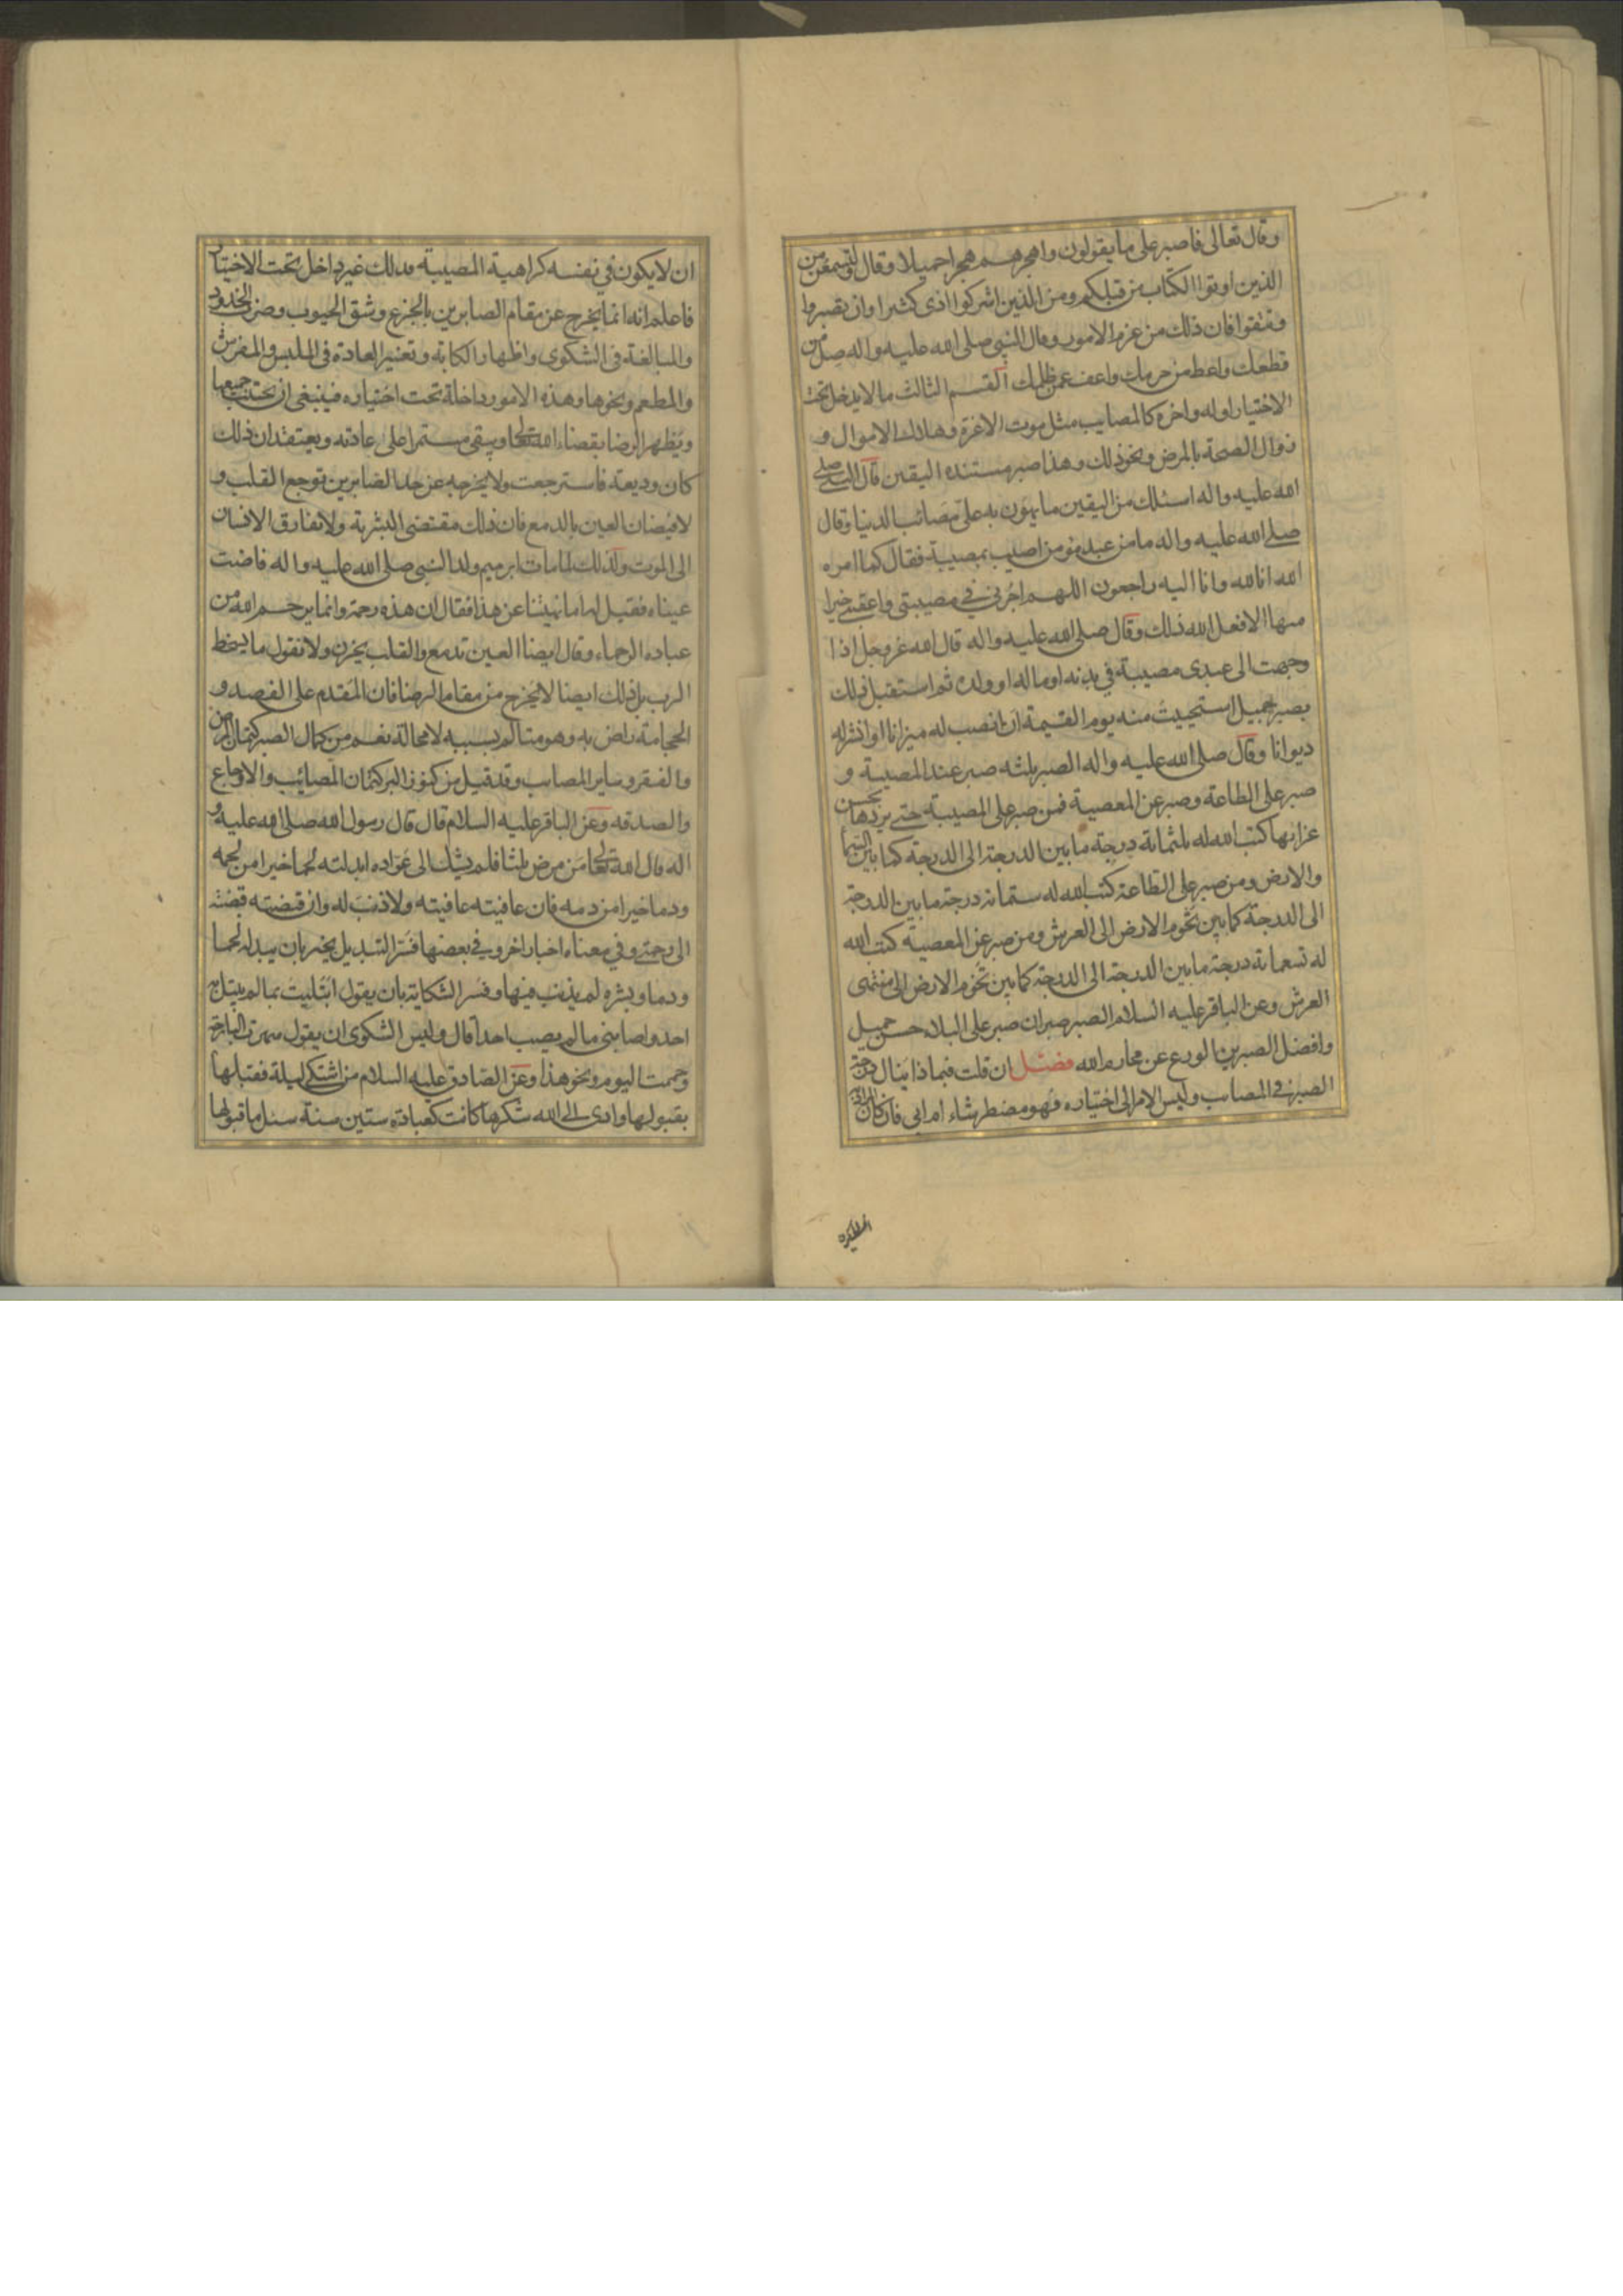 وقال تعالى فاصبر على ما يقولون واهجرهم هجرا جميلا وقال ولتسمعن من
الذين اوتوا الكتاب من قبلكم ومن الذين اشركوا اذى كثيرا وان تصبروا
وتتقوا فان ذلك من عزم الامور وقال النبي صلى الله عليه واله صل من
قطعك واعط من حرمك واعف عمن ظلمك القسم الثالث ما لا يدخل تحت
الاختيار اوله واخره كالمصايب مثل موت الاعزة وهلاك الاموال و
زوال الصحة بالمرض ونحو ذلك وهذا صبر مستنده اليقين قال النبي صلى
الله عليه واله اسئلك من اليقين ما يهون به علي مصائب الدنيا وقال
صلى الله عليه واله ما من عبد مؤمن اصيب بمصيبة فقال كما امره
الله انا لله وانا اليه راجعون اللهم اجرني في مصيبتي واعقبني خيرا
منها الا فعل الله ذلك وقال صلى الله عليه واله قال الله عز وجل اذا
وجهت الى عبدى مصيبة في بدنه او ماله او ولده ثم استقبل ذلك
بصبر جميل استحييت منه يوم القيمة ان انصب له ميزانا او انشر له
ديوانا وقال صلى الله عليه واله الصبر ثلثه صبر عند المصيبة و
صبر على الطاعة وصبر عن المعصية فمن صبر على المصيبة حتى يردها بحسن
عزائها كتب الله له ثلثمائة درجة ما بين الدرجة الى الدرجة كما بين السما
والارض ومن صبر على الطاعة كتب الله له ستمائة درجة ما بين الدرجة
الى الدرجة كما بين تخوم الارض الى العرش ومن صبر عن المعصية كتب الله
له تسعمائة درجة ما بين الدرجة الى الدرجة كما بين تخوم الارض الى منتهى
العرش وعن الباقر عليه السلام الصبر صبران صبر على البلاء حسن جميل
وافضل الصبرين الورع عن محارم الله فصل ان قلت فبماذا ينال درجة
الصبر في المصايب وليس الامر الى اختياره فهو مضطر شاء ام ابى فان كان المراد
ان لا يكون في نفسه كراهية المصيبة فذلك غير داخل تحت الاختيار
فاعلم انه انما يخرج عن مقام الصابرين بالجزع وشق الجيوب وضرب الخدود
والمبالغة في الشكوى واظهار الكابة وتغيير العادة في الملبس والمفرش
والمطعم ونحوها وهذه الامور داخلة تحت اختياره فينبغي ان يجتنب جميعها
ويظهر الرضا بقضاء الله تعالى ويبقى مستمرا على عادته ويعتقد ان ذلك
كان وديعة فاسترجعت ولا يخرجه عن حد الصابرين توجع القلب و
لا فيضان العين بالدمع فان ذلك مقتضى البشرية ولا تفارق الانسان
الى الموت ولذلك لما مات ابرهيم ولد النبي صلى الله عليه واله فاضت
عيناه فقيل له اما نهيتنا عن هذا فقال ان هذه رحمة وانما يرحم الله من
عباده الرحماء وقال ايضا العين تدمع والقلب يحزن ولا نقول ما يسخط
الرب بل ذلك ايضا لا يخرج من مقام الرضا فان المقدم على الفصد و
الحجامة راض به وهو متالم بسببه لا محالة نعم من كمال الصبر كتمان المرض
والفقر وساير المصايب وقد قيل من كنوز البر كتمان المصائب والاوجاع
والصدقه وعن الباقر عليه السلام قال قال رسول الله صلى الله عليه و
اله قال الله تعالى من مرض ثلثا فلم يشك الى عواده ابدلته لحما خيرا من لحمه
ودما خيرا من دمه فان عافيته عافيته ولا ذنب له وان قبضته قبضته
الى رحمتى وفي معناه اخبار اخر وفي بعضها فسر التبديل بخير بان يبدله لحما
ودما وبشره لم يذنب فيها وفسر الشكاية بان يقول ابتليت بما لم يبتل به
احد واصابني ما لم يصب احدا قال وليس الشكوى ان يقول سهرت البارحة
وحممت اليوم ونحو هذا وعن الصادق عليه السلام من اشتكى ليلة فقبلها
بقبولها وادى الى الله شكرها كانت كعبادة ستين سنة سئل ما قبولها